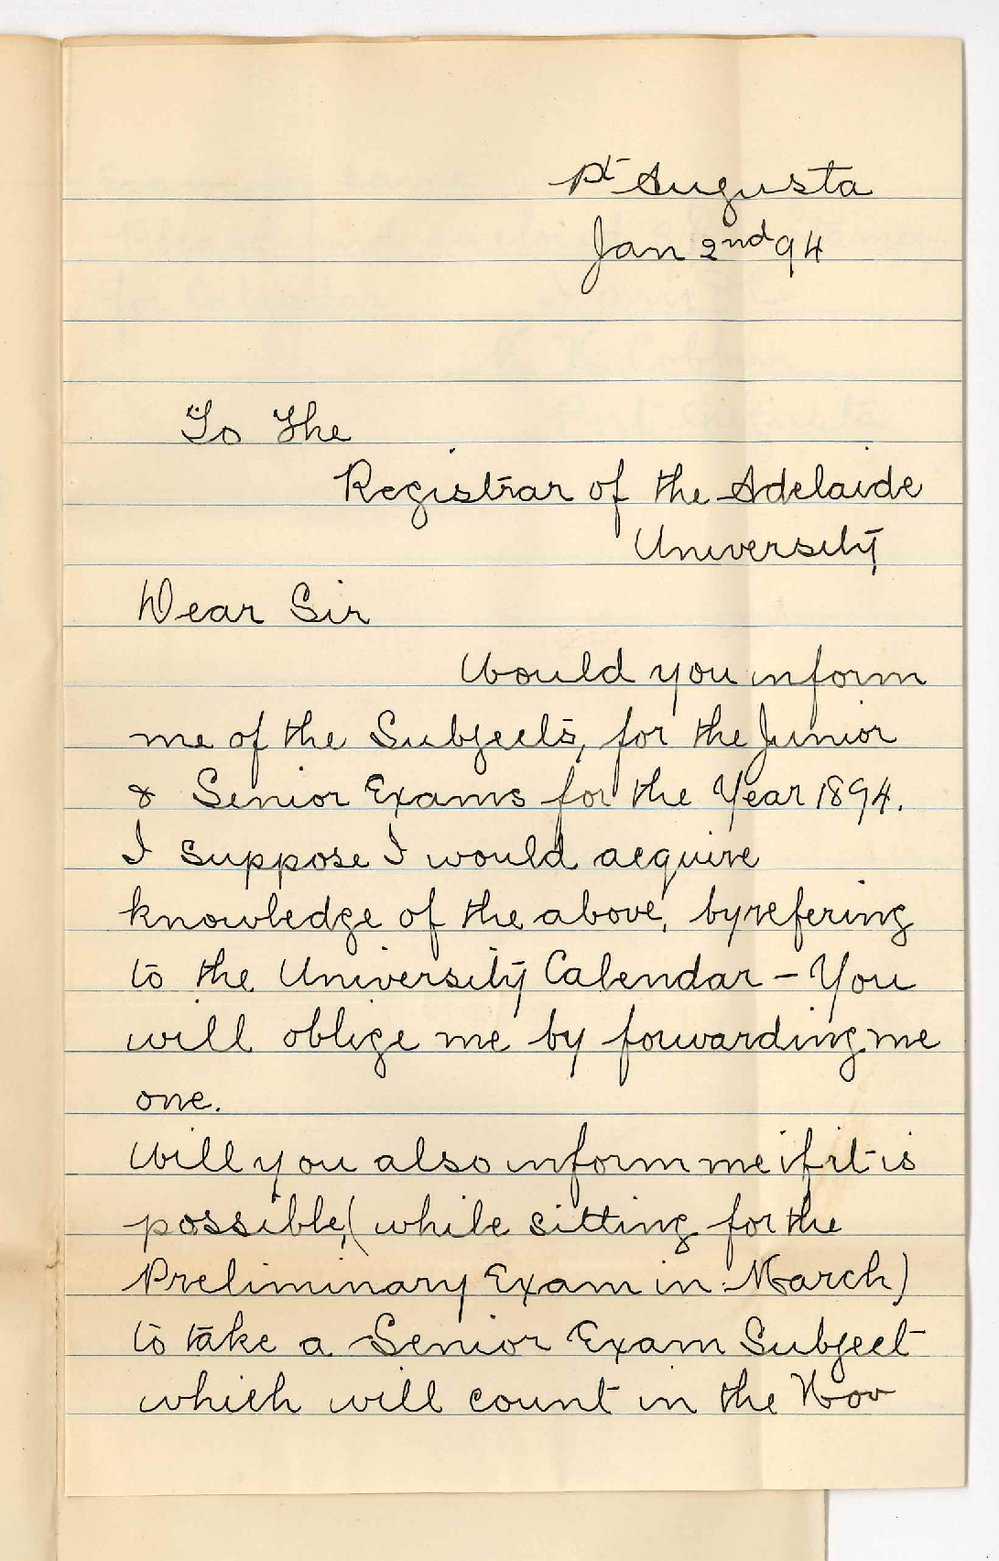 Pt Augusta
Jan 2nd 94
To The
Registrar of the Adelaide
University
Dear Sir
Would you inform
me of the Subjects, for the Junior
& Senior Exams for the Year 1894.
I suppose I would acquire
knowledge of the above, by refering
to the University Calendar - You
will oblige me by forwarding me
one.
Will you also inform me if it is
possible, (while sitting for the
Preliminary Exam in March)
to take a Senior Exam Subject
which will count in the Nov